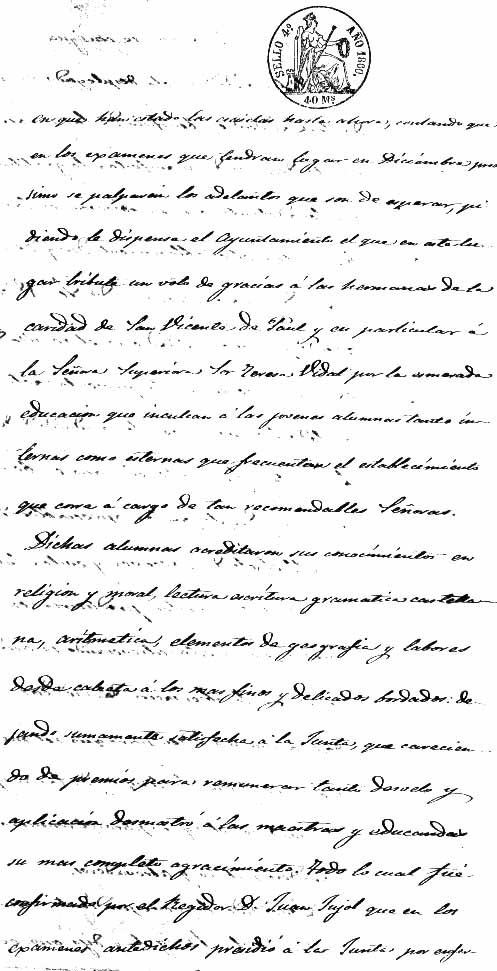 SELLO 4º AÑO 1860.
40 Ms
en que han estado las criadas hasta ahora, contando que
en los examenes que tendran lugar en Diciembre pro
simo se palparán los adelantos que son de esperar, pi
diendo le dispense el Ayuntamiento el que en este lu
gar tribute un voto de gracias á las hermanas de la
caridad de San Vicente de Paul y en particular á
la Señora Superiora Sor Teresa Vidal por la esmerada
educacion que inculcan á las jovenes alumnas tanto in-
ternas como esternas que frecuentan el establecimiento
que corre á cargo de tan recomendables Señoras.
Dichas alumnas acreditaron sus conocimientos en
religion y moral, lectura escritura gramatica castella
na, aritmética, elementos de geografia y labores
desde calceta á los mas finos y delicados bordados: de
jando sumamente satisfecha á la Junta, que carecien
do de premios para remunerar tanto desvelo y
aplicación demostró á las maestras y educandas
su mas completo agracimiento. Todo lo cual fué
confirmado por el Regidor D. Juan Pujol que en los
examenes antedichos presidió á la Junta por enfer-